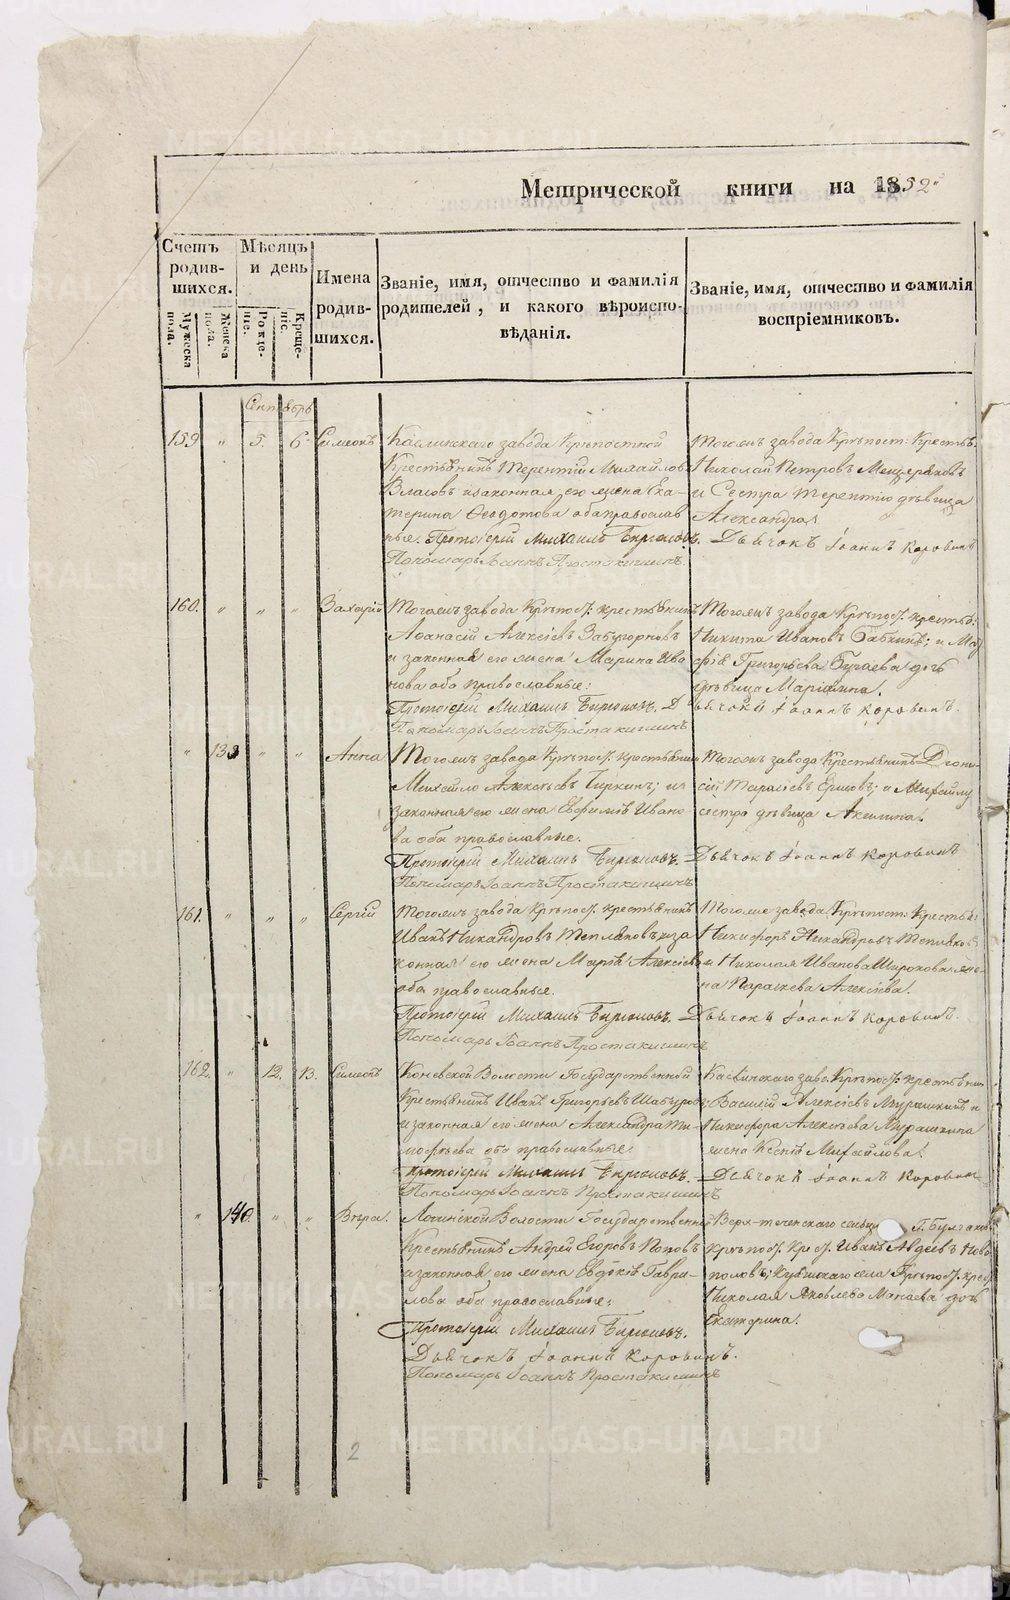 Метрической книги на 1852й
Счетъ родив-шихся.
Мужеска пола.
Женска пола.
Мѣсяцъ и день
Рожде-ніе.
Креще-ніе.
Имена родив-шихся.
Званіе, имя, отчество и фамилія
родителей, и какого вѣроиспо-
вѣданія.
Званіе, имя, отчество и фамилія
воспріемниковъ.
Сентябрь
159 " 5. 6. Симеонъ
Каслинскаго завода Крѣпостной
Крестьянинъ Терентій Михайловъ
Власовъ и законная его жена Ека-
терина Ѳеодотова оба православ
ные. Протоіерей Михаилъ Бирюковъ.
Пономарь Іоаннъ Простакишинъ.
Тогожъ завода Крѣпост: Крестьян:
Николай Петровъ Мещеряковъ
и Сестра Терентію дѣвица
Александра.
Дьячокъ Іоаннъ Коровинъ
160. " " " Захарій
Тогожъ завода Крѣпос: крестьянинъ
Аѳанасій Алексѣевъ Забугорновъ
и законная его жена Марина Ива
нова оба православные:
Протоіерей Михаилъ Бирюковъ.
Пономарь Іоаннъ Простакишинъ
Тогожъ завода Крѣпос: крестья:
Никита Ивановъ Бабкинъ; и
Григорьева Бугаева дочь
дѣвица
Дьячокъ Іоаннъ Коровинъ.
" 139 " " Анна
Тогожъ завода Крѣпос: крестьянинъ
Михайло Алексѣевъ Гиркинъ; и
законная его жена Евфимія Ивано
ва оба православные.
Протоіерей Михаилъ Бирюковъ.
Пономарь Іоаннъ Простакишинъ
Тогожъ завода Крестьянинъ Діони-
сій Тарасіевъ и Михайлу
сестра дѣвица Акилина.
Дьячокъ Іоаннъ Коровинъ
161. " " " Сергій
Тогожъ завода Крѣпос: крестьянинъ
Иванъ Никандровъ Тепляковъ и за
конная его жена Марѳа Алексѣева
оба православные.
Протоіерей Михаилъ Бирюковъ.
Пономарь Іоаннъ Простакишинъ
Тогоже завода Крѣпост: Крестья:
Никифоръ Никандровъ Тепляковъ
и Николая Иванова Широкова же-
на Параскева Алексѣева.
Дьячокъ Іоаннъ Коровинъ.
162. " 12. 13. Симеонъ
Коневской Волости Государственной
Крестьянинъ Иванъ Григорьевъ Шабуровъ;
и законная его жена Александра Ти-
моѳѣева оба православные
Протоіерей Михаилъ Бирюковъ.
Пономарь Іоаннъ Простакишинъ
Каслинскаго заво. Крѣпос: крестьянин
Василій Алексѣевъ Мурашкинъ и
Никифора Алексѣева Мурашкина
жена Ксенія Михайлова.
Дьячокъ Іоаннъ Коровин
" 140. " " Вѣра.
Волости Государственной
Крестьянинъ Андрей Егоровъ Поповъ
и законная его жена Евдокія Гаври-
лова оба православные;
Протоіерей Михаилъ Бирюковъ.
Дьячокъ Іоаннъ Коровинъ.
Пономарь Іоаннъ Простакишинъ
Верх-теченскаго
крѣпос: Крес: Иванъ Авдеевъ
села Крѣпос: крес
Николая Яковлева дочь
Екатерина.
2
METRIKI.GASO-URAL.RU